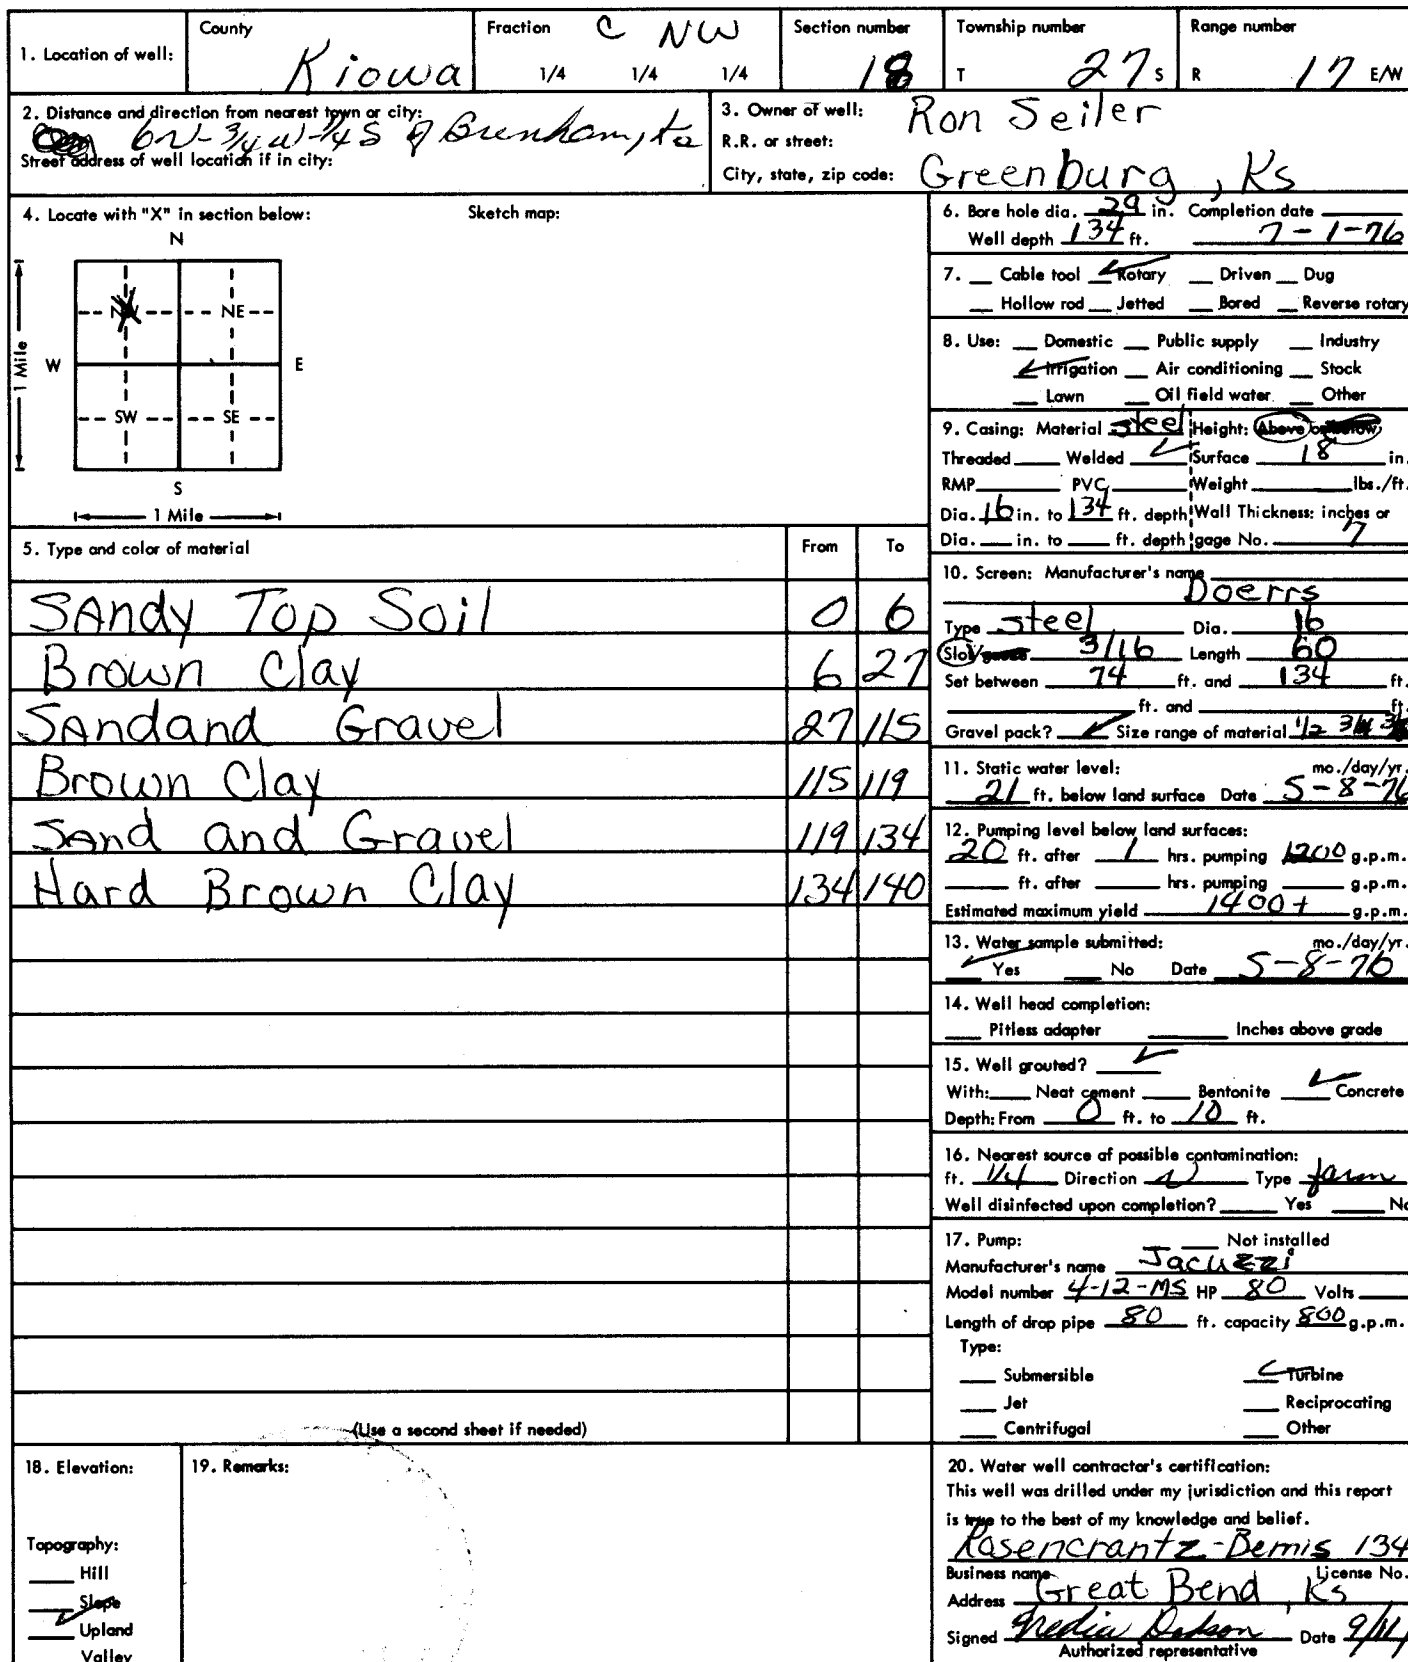 1. Location of well:
County
Kiowa
Fraction C NW
1/4 1/4 1/4
Section number
18
Township number
T 27 S
Range number
R 17 E/W
2. Distance and direction from nearest town or city:
6N-3/4W-1/4S of Brenham, Ks
Street address of well location if in city:
3. Owner of well: Ron Seiler
R.R. or street:
City, state, zip code: Greenburg, Ks
4. Locate with "X" in section below: Sketch map:
N
NW NE
W E
1 Mile
SW SE
S
1 Mile
5. Type and color of material From To
SAndy Top Soil 0 6
Brown Clay 6 27
SAndand Gravel 27 115
Brown Clay 115 119
SAnd and Gravel 119 134
Hard Brown Clay 134 140
(Use a second sheet if needed)
6. Bore hole dia. 29 in. Completion date
Well depth 134 ft. 7-1-76
7. Cable tool ✓ Rotary Driven Dug
Hollow rod Jetted Bored Reverse rotary
8. Use: Domestic Public supply Industry
✓ Irrigation Air conditioning Stock
Lawn Oil field water Other
9. Casing: Material steel Height: Above or below
Threaded Welded ✓ Surface 18 in.
RMP PVC Weight lbs./ft.
Dia. 16 in. to 134 ft. depth Wall Thickness: inches or
Dia. in. to ft. depth gage No. 7
10. Screen: Manufacturer's name
Doerrs
Type steel Dia. 16
Slot/gauze 3/16 Length 60
Set between 74 ft. and 134 ft.
ft. and ft.
Gravel pack? ✓ Size range of material 1/2
11. Static water level: mo./day/yr.
21 ft. below land surface Date 5-8-76
12. Pumping level below land surfaces:
20 ft. after 1 hrs. pumping 1200 g.p.m.
ft. after hrs. pumping g.p.m.
Estimated maximum yield 1400+ g.p.m.
13. Water sample submitted: mo./day/yr.
✓ Yes No Date 5-8-76
14. Well head completion:
Pitless adapter Inches above grade
15. Well grouted? ✓
With: Neat cement Bentonite ✓ Concrete
Depth: From 0 ft. to 10 ft.
16. Nearest source of possible contamination:
ft. 1/4 Direction N Type farm
Well disinfected upon completion? Yes No
17. Pump: Not installed
Manufacturer's name Jacuzzi
Model number 4-12-MS HP 80 Volts
Length of drop pipe 80 ft. capacity 800 g.p.m.
Type:
Submersible ✓ Turbine
Jet Reciprocating
Centrifugal Other
18. Elevation:
Topography:
Hill
Slope
✓ Upland
Valley
19. Remarks:
20. Water well contractor's certification:
This well was drilled under my jurisdiction and this report
is true to the best of my knowledge and belief.
Rosencrantz-Bemis 134
Business name License No.
Address Great Bend, Ks
Signed Date 9/11/
Authorized representative